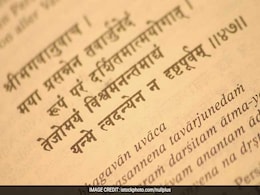 श्रीभगवानुवाच ।
मया प्रसन्नेन तवार्जुनेदं
रूपं परं दर्शितमात्मयोगात् ।
तेजोमयं विश्वमनन्तमाद्यं
यन्मे त्वदन्येन न दृष्टपूर्वम् ॥४७॥
bhagavān uvāca
prasannena tavārjunedaṁ
paraṁ darśitam ātma-yogāt
viśvam anantam ādyaṁ
na dṛṣṭa
IMAGE CREDIT: istockphoto.com/nullplus